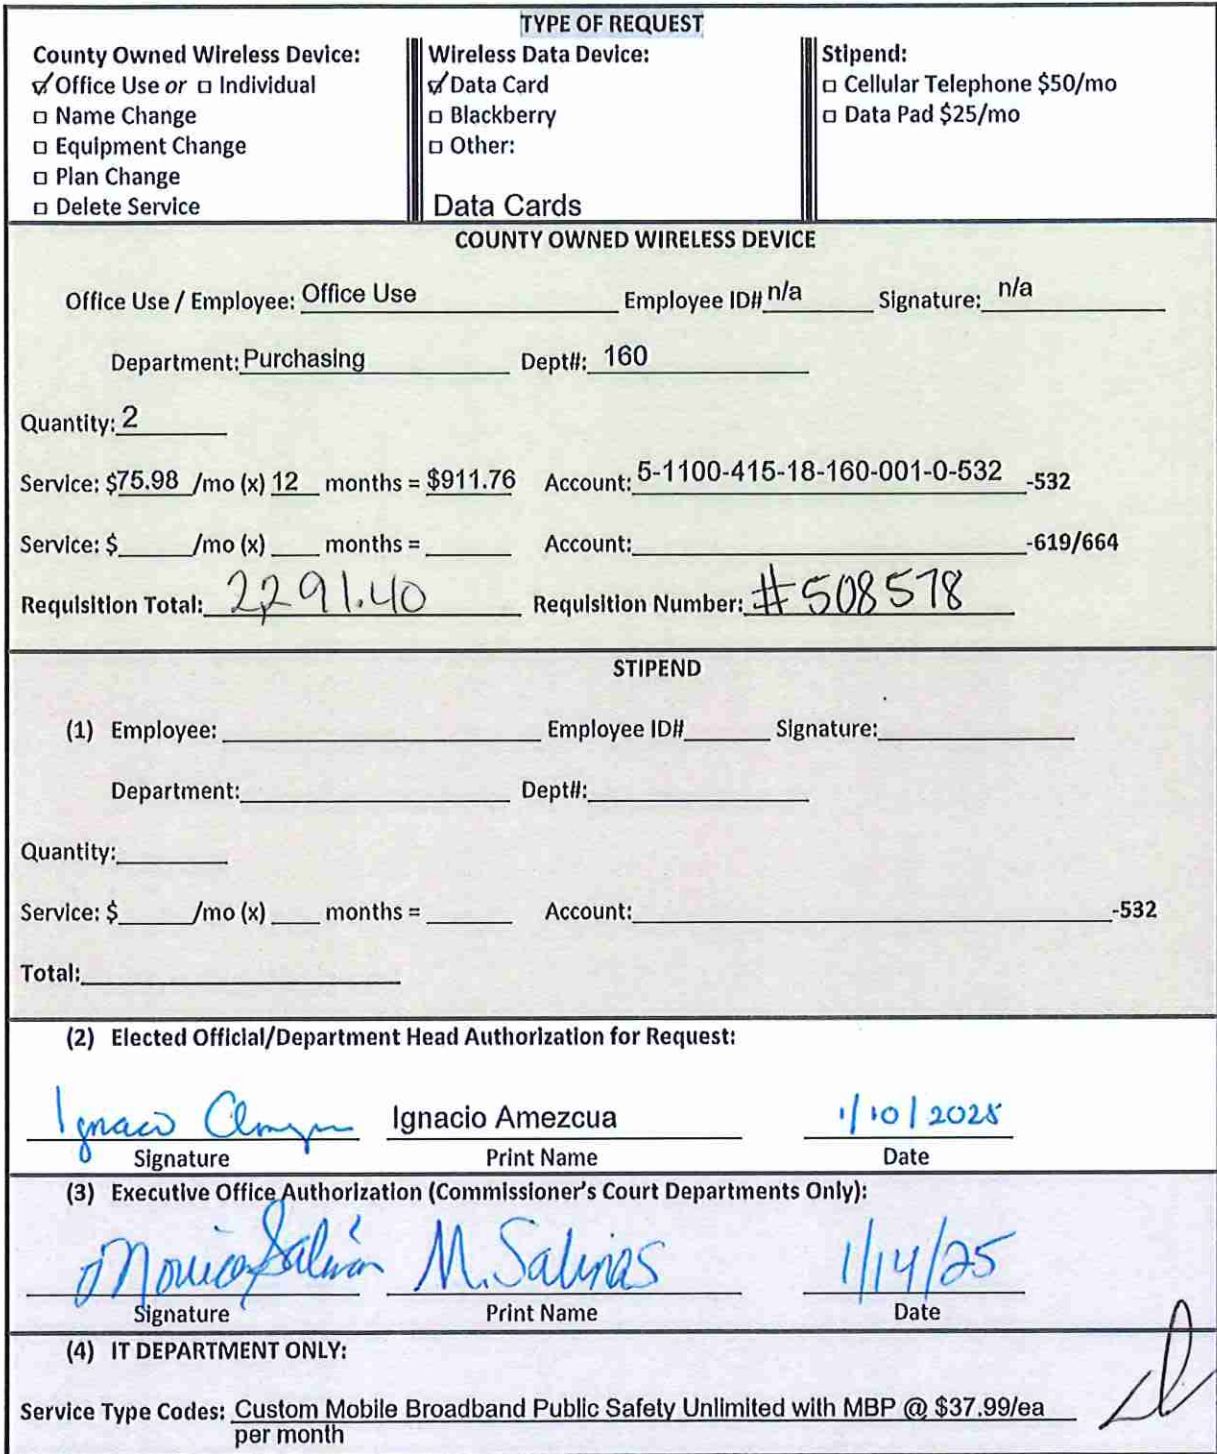 TYPE OF REQUEST
County Owned Wireless Device:
Office Use or □ Individual
□ Name Change
□ Equipment Change
□ Plan Change
□ Delete Service
Wireless Data Device:
Data Card
□ Blackberry
□ Other:
Data Cards
Stipend:
□ Cellular Telephone $50/mo
□ Data Pad $25/mo
COUNTY OWNED WIRELESS DEVICE
Office Use / Employee: Office Use Employee ID# n/a Signature: n/a
Department: Purchasing Dept#: 160
Quantity: 2
Service: $75.98 /mo (x) 12 months = $911.76 Account: 5-1100-415-18-160-001-0-532 -532
Service: $ /mo (x) months = Account: -619/664
Requisition Total: 2,291.40 Requisition Number: #508578
STIPEND
(1) Employee: Employee ID# Signature:
Department: Dept#:
Quantity:
Service: $ /mo (x) months = Account: -532
Total:
(2) Elected Official/Department Head Authorization for Request:
Ignacio Amezcua Ignacio Amezcua 1/10/2025
Signature Print Name Date
(3) Executive Office Authorization (Commissioner's Court Departments Only):
Monica Salinas M. Salinas 1/14/25
Signature Print Name Date
(4) IT DEPARTMENT ONLY:
Service Type Codes: Custom Mobile Broadband Public Safety Unlimited with MBP @ $37.99/ea
per month